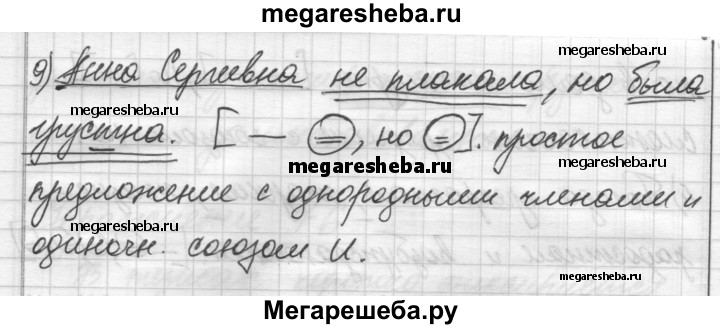 megaresheba.ru
megaresheba.ru
9) Анна Сергеевна не плакала, но была
грустна. [— ⊜, но ⊜]. простое
megaresheba.ru
megaresheba.ru
предложение с однородными членами и
megaresheba.ru
одиночн. союзом И.
megaresheba.ru
Мегарешеба.ру